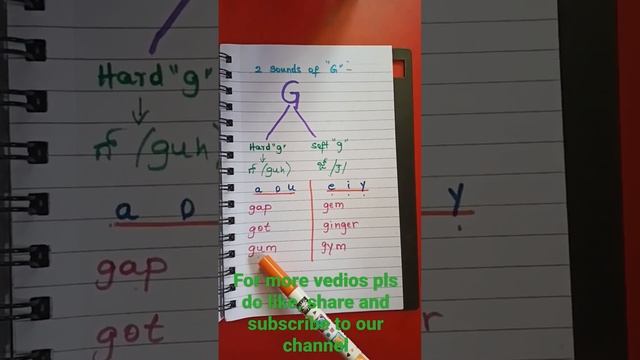 2 sounds of "G" :-
G
Hard "g" soft "g"
↓
க் (guh) ஜ் /J/
a o u e i y
gap gem
got ginger
gum gym
For more vedios pls
do like, share and
subscribe to our
channel